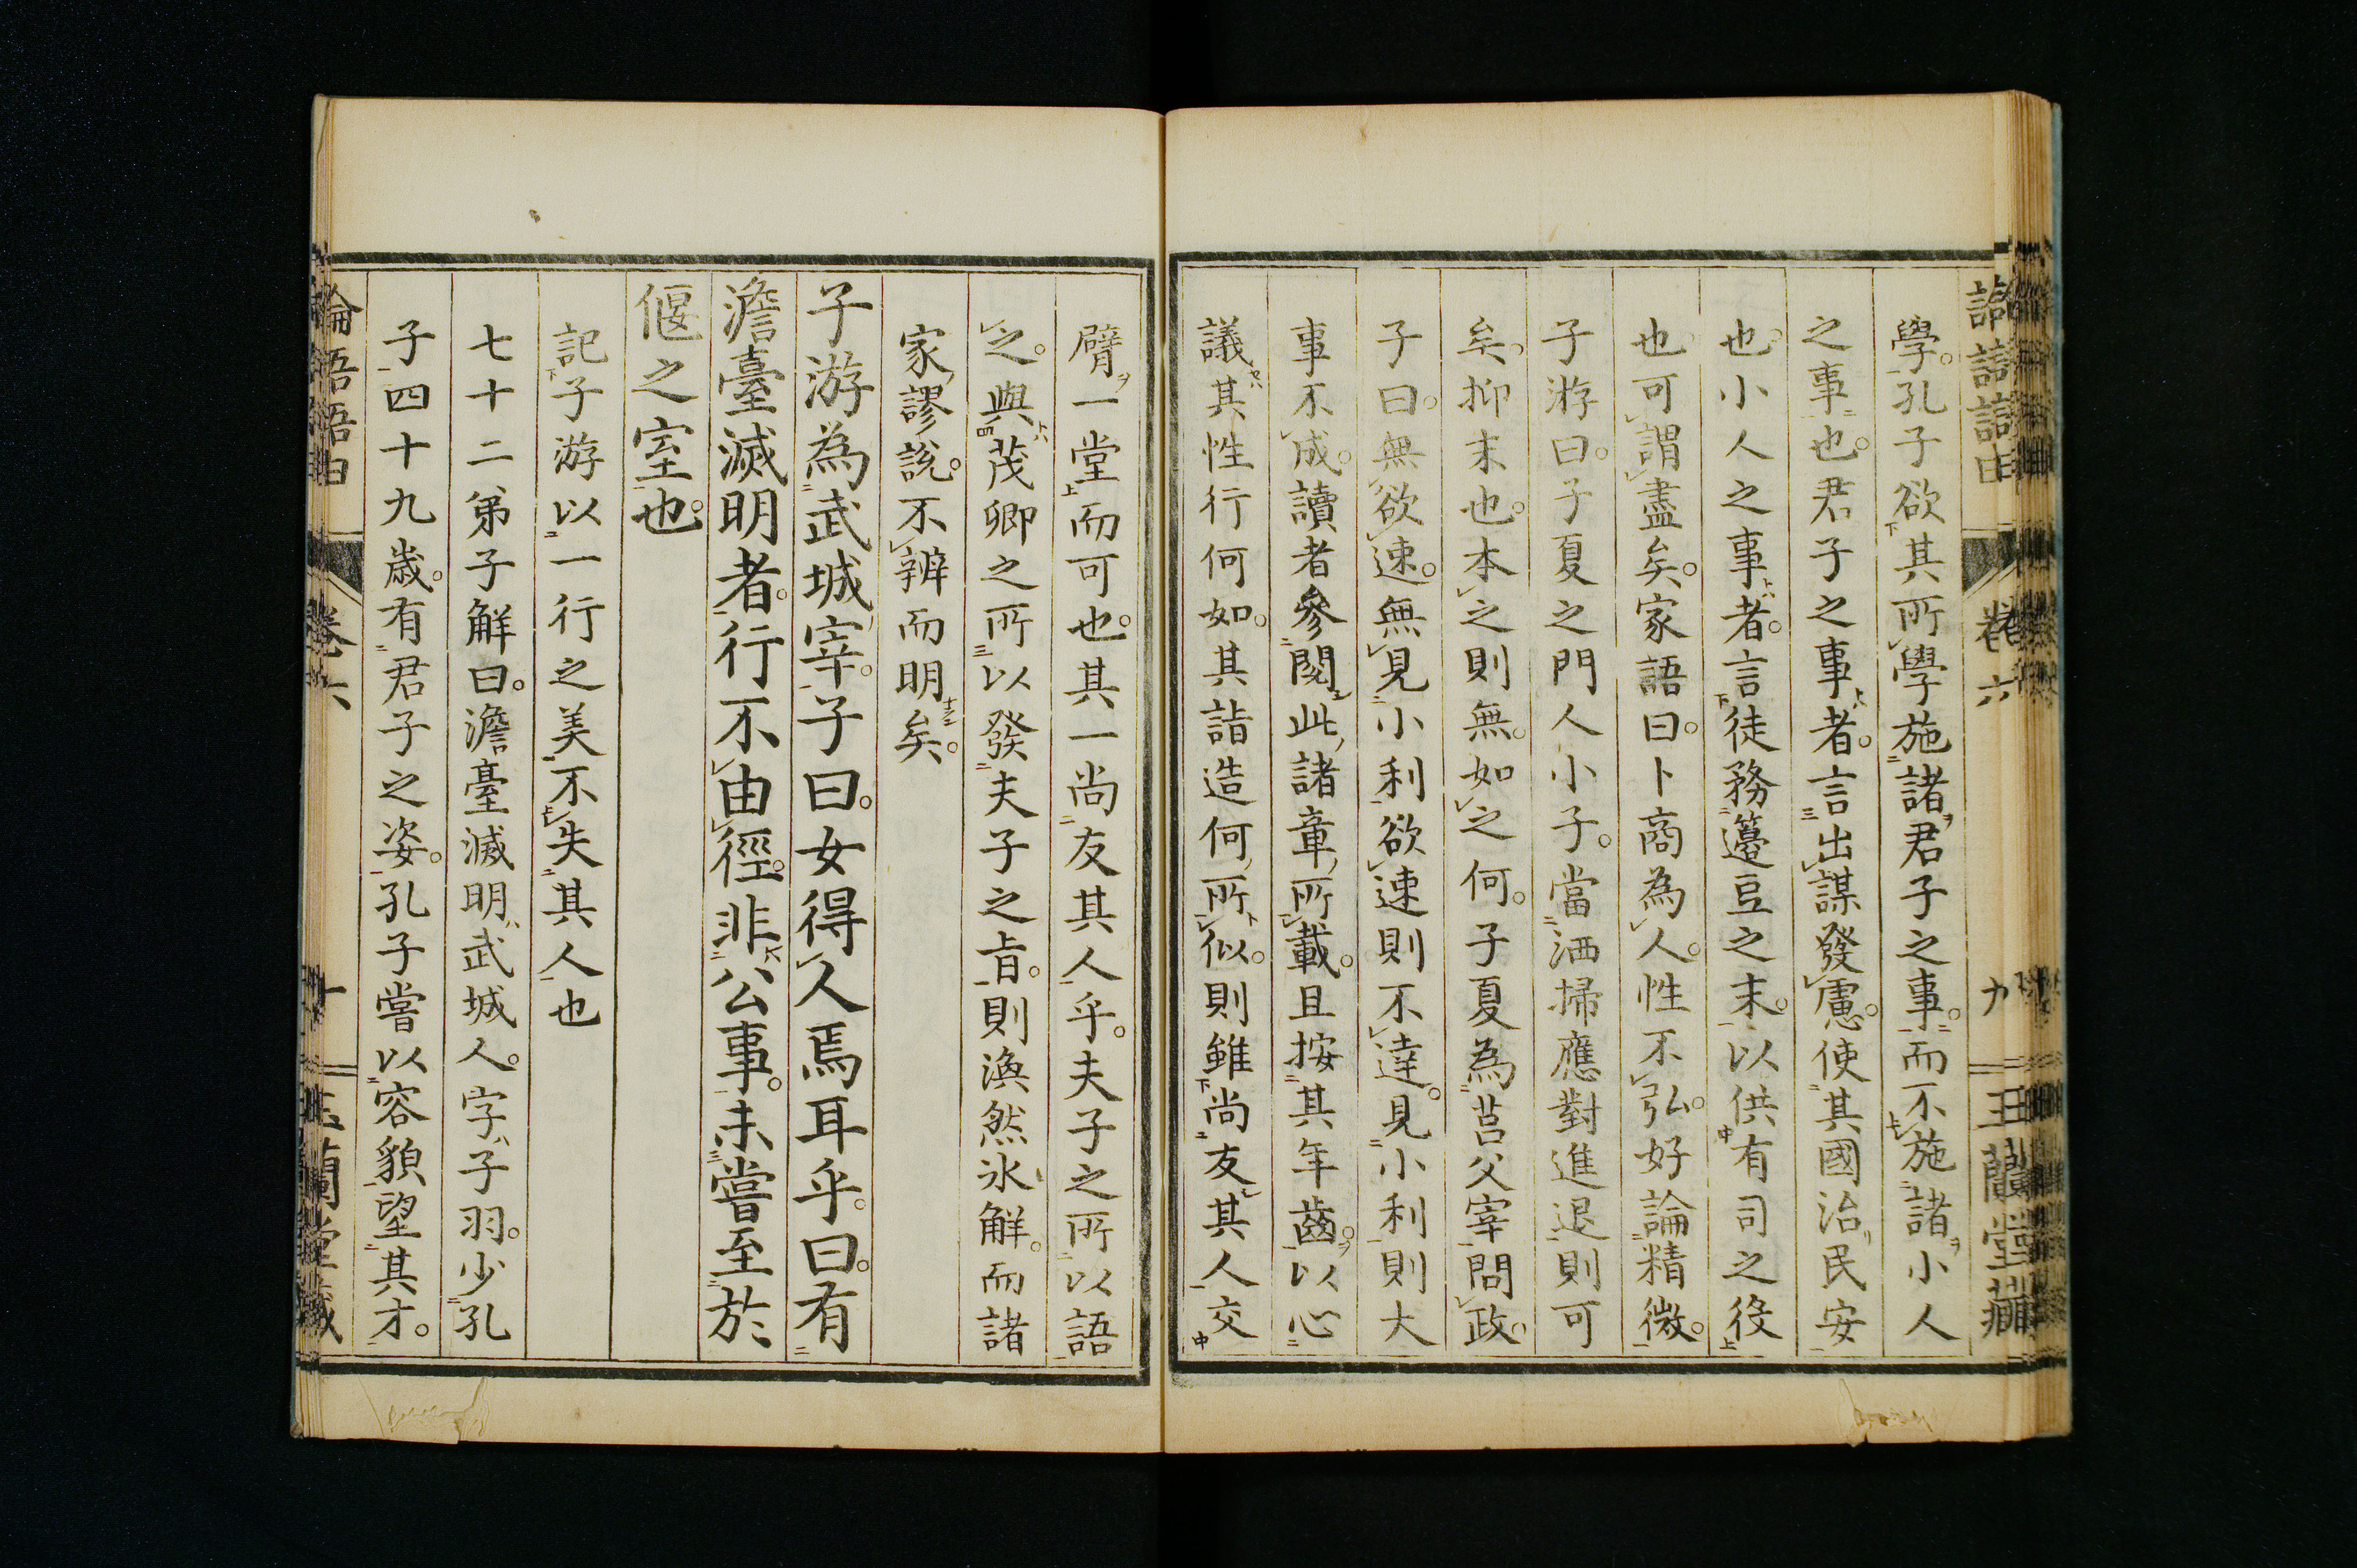 學。孔子欲其所學施諸君子之事。而不施諸小人
之事也。君子之事者。言出謀發慮。使其國治民安
也。小人之事者。言徒務籩豆之末。以供有司之役
也。可謂盡矣。家語曰。卜商為人。性不弘。好論精微。
子游曰。子夏之門人小子。當洒掃應對進退則可
矣。抑末也。本之則無。如之何。子夏為莒父宰。問政。
子曰。無欲速。無見小利。欲速則不達。見小利則大
事不成。讀者參閱此諸章所載。且按其年齒。以心
議其性行何如。其詣造何所似。則雖尚友其人交
臂一堂而可也。其一尚友其人乎。夫子之所以語
之。與茂卿之所以發夫子之旨。則渙然氷解。而諸
家謬說。不辨而明矣。
子游為武城宰。子曰。女得人焉耳乎。曰。有
澹臺滅明者。行不由徑。非公事。未嘗至於
偃之室也。
記子游以一行之美不失其人也
七十二弟子解曰。澹臺滅明武城人。字子羽。少孔
子四十九歲。有君子之姿。孔子嘗以容貌望其才。
論語語由
卷六
十
玉蘭堂藏